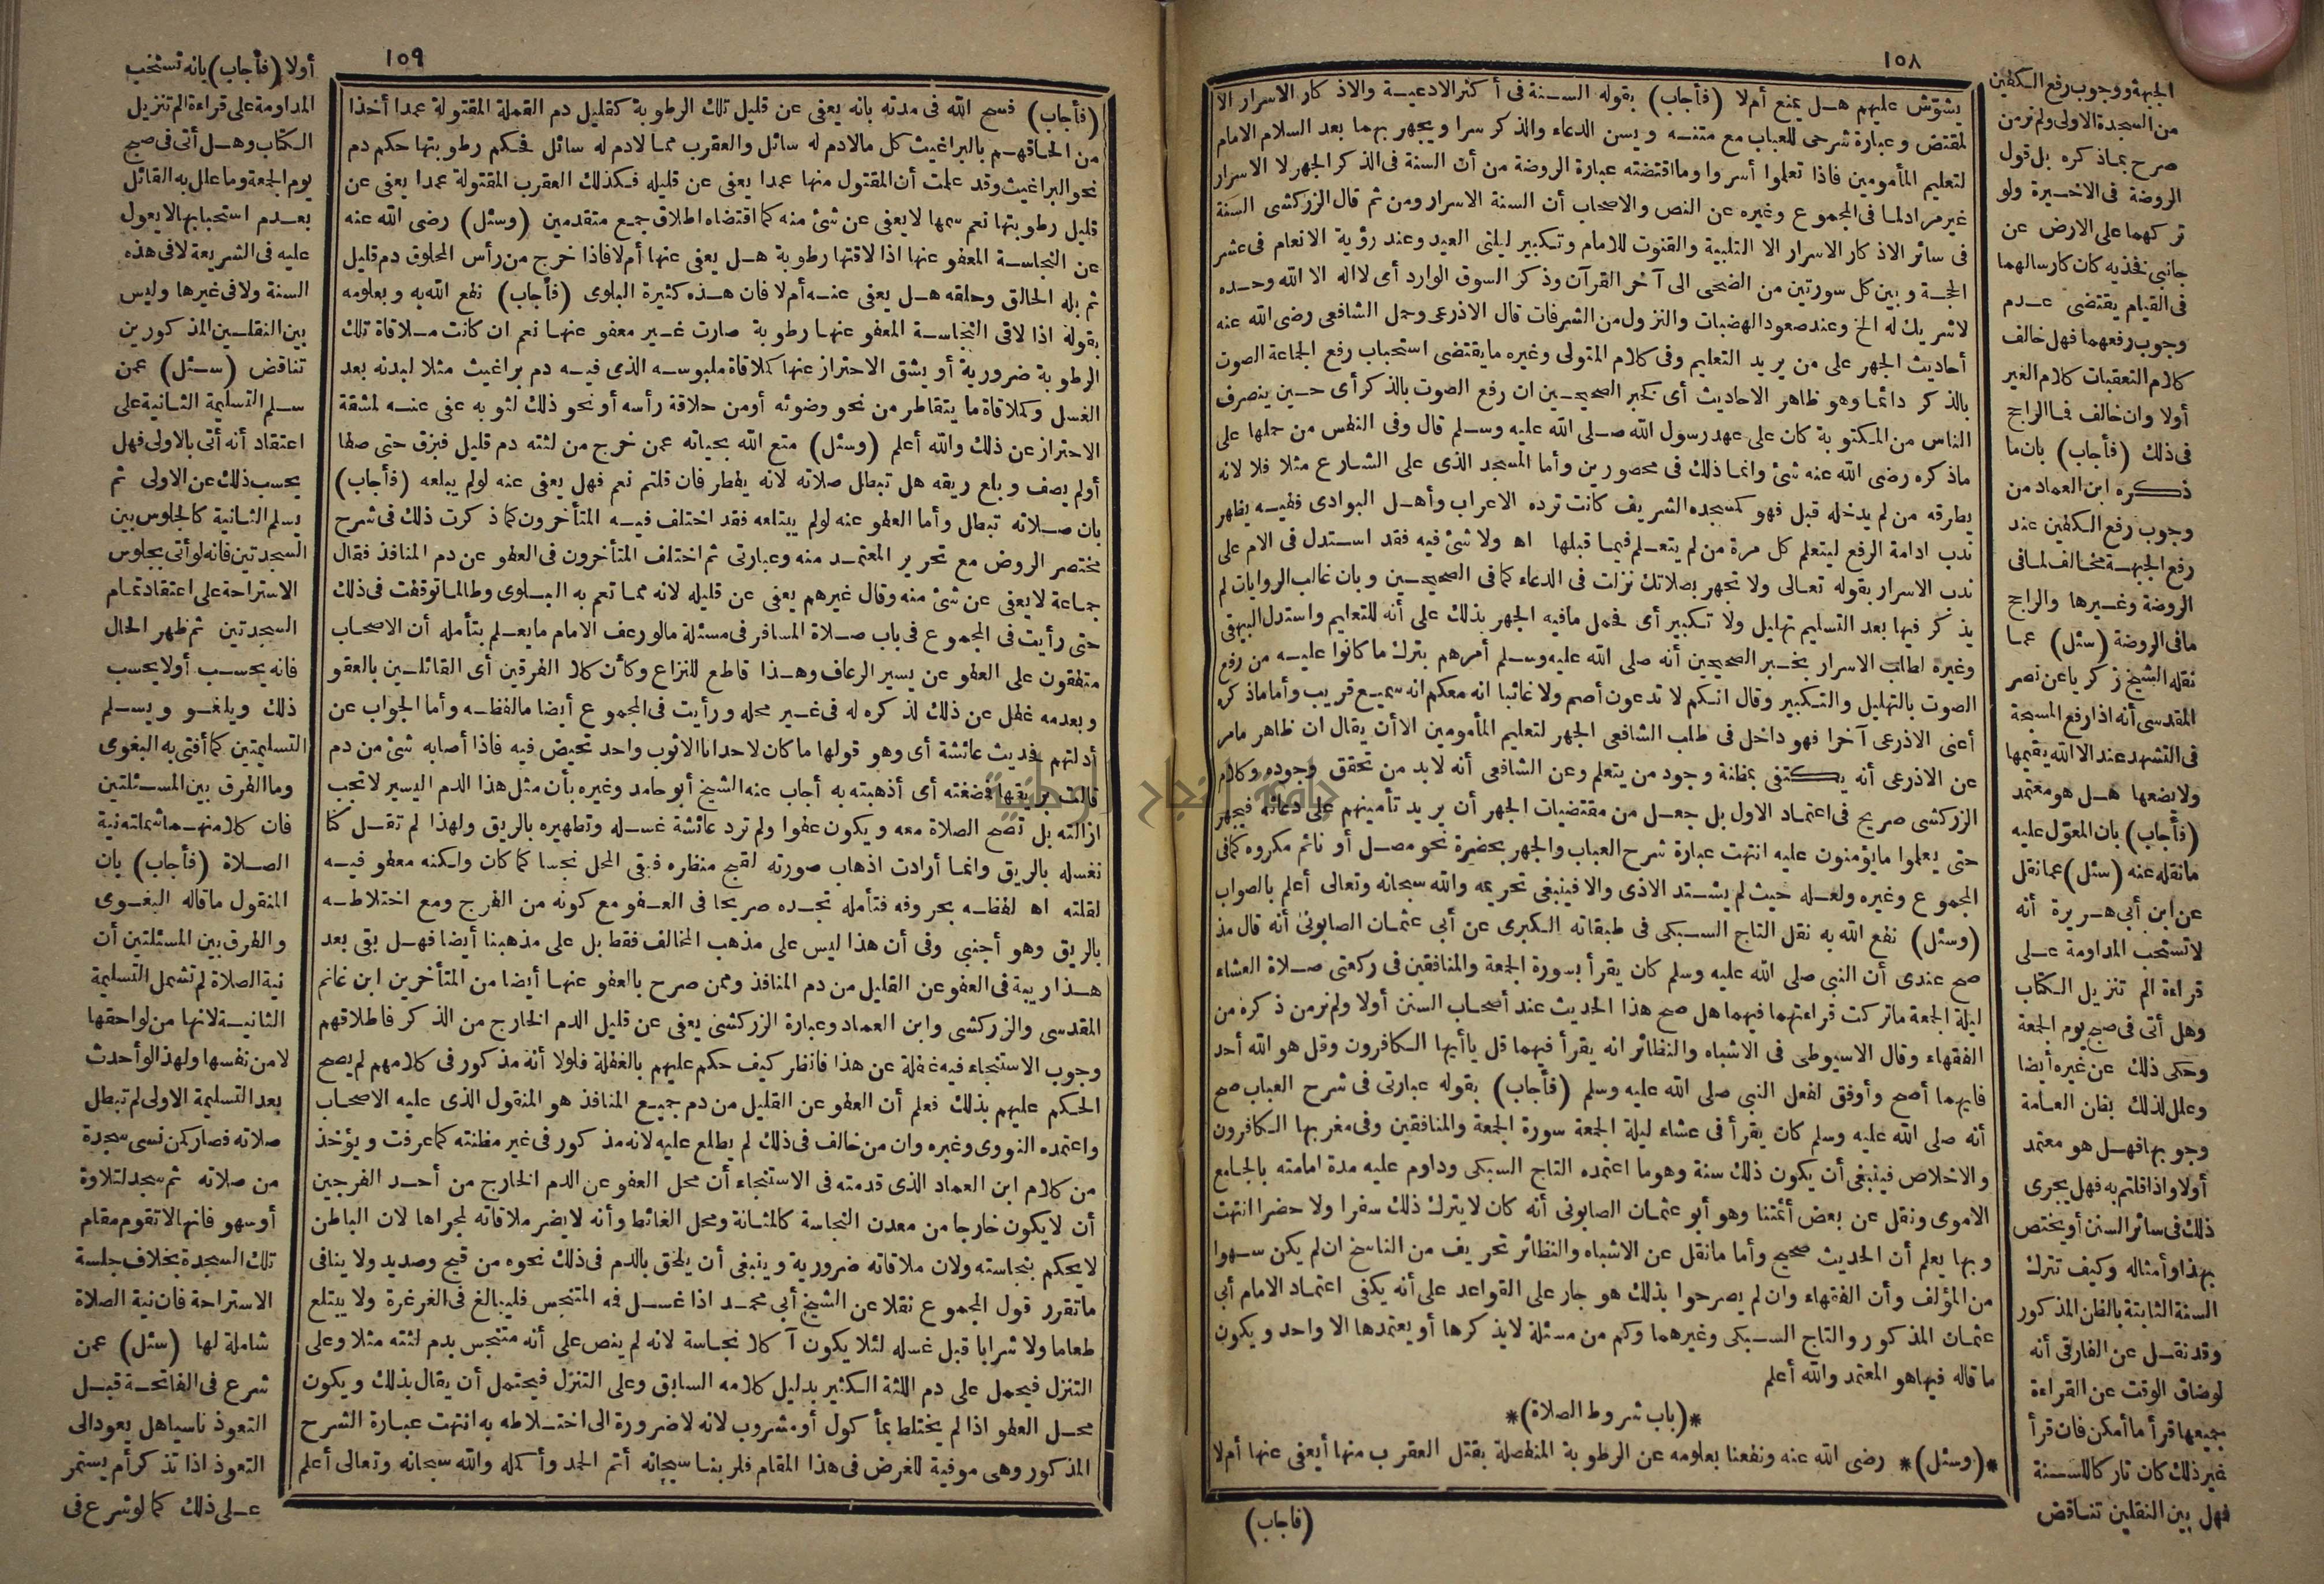 ١٠٨
يشوّش عليهم هـل يمنع أم لا (فأجاب) بقوله السـنة فى أكثر الادعيـة والاذكار الاسرار الا
لمقتض وعبارة شرحى للعباب مع متنـه ويسن الدعاء والذكر سرا ويجهر بهما بعد السلام الامام
لتعليم المأمومين فاذا تعلموا أسروا وما اقتضته عبارة الروضة من أن السنة فى الذكر الجهر لا الاسرار
غير مراد لما فى المجموع وغيره عن النص والاصحاب أن السنة الاسرار ومن ثم قال الزركشى السنة
فى سائر الاذكار الاسرار الا التلبية والقنوت للامام وتكبير ليلتى العيد وعند رؤية الانعام فى عشر
الحجـة وبين كل سورتين من الضحى الى آخر القرآن وذكر السوق الوارد أى لااله الا الله وحـده
لاشريك له الخ وعند صعود الهضبات والنزول من الشرفات قال الاذرعى وحمل الشافعى رضى الله عنه
أحاديث الجهر على من يريد التعليم وفى كلام المتولى وغيره مايقتضى استحباب رفع الجماعة الصوت
بالذكر دائما وهو ظاهر الاحاديث أى كخبر الصحيحـين ان رفع الصوت بالذكر أى حـين ينصرف
الناس من المكتوبة كان على عهد رسول الله صـلى الله عليه وسـلم قال وفى النفس من حملها على
ماذكره رضى الله عنه شئ وانما ذلك فى محصورين وأما المسجد الذى على الشارع مثلا فلا لانه
يطرقه من لم يدخله قبل فهو كمسجده الشريف كانت ترده الاعراب وأهـل البوادى ففيـه يظهر
ندب ادامة الرفع ليتعلم كل مرة من لم يتعـلم فيما قبلها اه ولا شئ فيه فقد اسـتدل فى الام على
ندب الاسرار بقوله تعـالى ولا تجهر بصلاتك نزلت فى الدعاء كما فى الصحيحـين وبان غالب الروايات لم
يذكر فيها بعد التسليم تهليل ولا تكبير أى فحمل مافيه الجهر بذلك على أنه للتعليم واستدل البيهقى
وغيره لطلب الاسرار بخـبر الصحيحين أنه صلى الله عليه وسـلم أمرهم بترك ماكانوا عليـه من رفع
الصوت بالتهليل والتكبير وقال انكم لا تدعون أصم ولا غائبا انه معكم انه سميـع قريب وأما ماذكره
أعنى الاذرعى آخرا فهو داخل فى طلب الشافعى الجهر لتعليم المأمومين الا أن يقال ان ظاهر مامر
عن الاذرعى أنه يكتفى بمظنة وجود من يتعلم وعن الشافعى أنه لابد من تحقق وجوده وكلام
الزركشى صريح فى اعتماد الاول بل جعـل من مقتضيات الجهر أن يريد تأمينهم على دعائه فيجهر
حتى يعلموا مايؤمنون عليه انتهت عبارة شرح العباب والجهر بحضرة نحو مصـل أو نائم مكروه كما فى
المجموع وغيره ولعـله حيث لم يشـتد الاذى والا فينبغى تحريمه والله سبحانه وتعالى أعلم بالصواب
(وسئل) نفع الله به نقل التاج السـبكى فى طبقاته الكبرى عن أبى عثمـان الصابونى أنه قال مذ
صح عندى أن النبى صلى الله عليه وسلم كان يقرأ بسورة الجمعة والمنافقين فى ركعتى صـلاة العشاء
ليلة الجمعة ماتركت قراءتهما فيهما هل صح هذا الحديث عند أصحاب السنن أولا ولم نر من ذكره من
الفقهاء وقال الاسيوطى فى الاشباه والنظائر انه يقرأ فيهما قل ياأيها الكافرون وقل هو الله أحد
فايهما أصح وأوفق لفعل النبى صلى الله عليه وسلم (فأجاب) بقوله عبارتى فى شرح العباب صح
أنه صلى الله عليه وسلم كان يقرأ فى عشاء ليلة الجمعة سورة الجمعة والمنافقين وفى مغربها الكافرون
والاخلاص فينبغى أن يكون ذلك سنة وهو ما اعتمده التاج السبكى وداوم عليه مدة امامته بالجامع
الاموى ونقل عن بعض أئمتنا وهو أبو عثمـان الصابونى أنه كان لايترك ذلك سفرا ولا حضرا انتهت
وبها يعلم أن الحديث صحيح وأما مانقل عن الاشباه والنظائر تحريف من الناسخ ان لم يكن سـهوا
من المؤلف وأن الفقهاء وان لم يصرحوا بذلك هو جار على القواعد على أنه يكفى اعتمـاد الامام أبى
عثمـان المذكور والتاج السـبكى وغيرهما وكم من مسئلة لايذكرها أو يعتمدها الا واحد ويكون
ماقاله فيها هو المعتمد والله أعلم
*(باب شروط الصلاة)*
*(وسئل)* رضى الله عنه ونفعنا بعلومه عن الرطوبة المنفصلة بقتل العقرب منها أيعفى عنها أم لا
(فاجاب)
الجبهة ووجوب رفع الكفين
من السجدة الاولى ولم نر من
صرح بماذكره بل قول
الروضة فى الاخـيرة ولو
تركهما على الارض عن
جانبى فخذيه كان كارسالهما
فى القيام يقتضى عـدم
وجوب رفعهما فهل خالف
كلام التعقبات كلام الغير
أولا وان خالف فما الراجح
فى ذلك (فأجاب) بان ما
ذكره ابن العماد من
وجوب رفع الكفين عند
رفع الجبهـة مخـالف لما فى
الروضة وغـيرها والراجح
مافى الروضة (سئل) عمـا
نقله الشيخ زكريا عن نصر
المقدسى أنه اذا رفع المسبحة
فى التشهد عند الا الله يقيمها
ولا يضعها هـل هو معتمد
(فأجاب) بان المعوّل عليه
مانقله عنه (سئل) عما نقل
عن ابن أبى هـريرة أنه
لا تستحب المداومة عـلى
قراءة الم تنزيل الكتاب
وهل أتى فى صبح يوم الجمعة
وحكى ذلك عن غيره أيضا
وعلل لذلك بظن العـامة
وجوبها فهـل هو معتمد
أولا واذا قلتم به فهل يجرى
ذلك فى سائر السنن أو يختص
بهذا وأمثاله وكيف تترك
السنة الثابتة بالظن المذكور
وقد نقـل عن الفارقى أنه
لو ضاق الوقت عن القراءة
جميعها قرأ ما أمكن فان قرأ
غير ذلك كان تاركا للسـنة
فهل بين النقلين تنـاقض
١٠٩
(فأجاب) فسح الله فى مدته بانه يعفى عن قليل تلك الرطوبة كقليل دم القملة المقتولة عمدا أخذا
من الحاقهـم بالبراغيث كل مالادم له سائل والعقرب ممـا لادم له سائل فحكم رطوبتها حكم دم
نحو البراغيث وقد علمت أن المقتول منها عمدا يعفى عن قليله فكذلك العقرب المقتولة عمدا يعفى عن
قليل رطوبتها نعم سمها لا يعفى عن شئ منه كما اقتضاه اطلاق جمـع متقدمين (وسئل) رضى الله عنه
عن النجاسـة المعفو عنها اذا لاقتها رطوبة هـل يعفى عنها أم لا فاذا خرج من رأس المحلوق دم قليل
ثم بله الحالق وحلقه هـل يعفى عنـه أم لا فان هـذه كثيرة البلوى (فأجاب) نفع الله به وبعلومه
بقوله اذا لاقى النجاسـة المعفو عنهـا رطوبة صارت غـير معفو عنهـا نعم ان كانت مـلاقاة تلك
الرطوبة ضرورية أو يشق الاحتراز عنها كملاقاة ملبوسـه الذى فيـه دم براغيث مثلا لبدنه بعد
الغسل وكملاقاة ما يتقاطر من نحو وضوئه أو من حلاقة رأسه أو نحو ذلك لثوبه عفى عنـه لمشقة
الاحتراز عن ذلك والله أعلم (وسئل) متع الله بحياته عمن خرج من لثته دم قليل فبزق حتى صفا
أو لم يصف وبلع ريقه هل تبطل صلاته لانه يفطر فان قلتم نعم فهل يعفى عنه لو لم يبلعه (فأجاب)
بان صـلاته تبطل وأما العفو عنه لو لم يبتلعه فقد اختلف فيـه المتأخرون كما ذكرت ذلك فى شرح
مختصر الروض مع تحرير المعتمـد منه وعبارتى ثم اختلف المتأخرون فى العفو عن دم المنافذ فقال
جمـاعة لا يعفى عن شئ منه وقال غيرهم يعفى عن قليله لانه ممـا تعم به البـلوى وطالما توقفت فى ذلك
حتى رأيت فى المجموع فى باب صـلاة المسافر فى مسئلة مالو رعف الامام مايعـلم بتأمله أن الاصحـاب
متفقون على العفو عن يسير الرعاف وهـذا قاطع للنزاع وكأن كلا الفرقين أى القائلـين بالعفو
وبعدمه غفل عن ذلك لذكره له فى غـير محله ورأيت فى المجموع أيضا مالفظـه وأما الجواب عن
أدلتهم فحديث عائشة أى وهو قولها ماكان لاحدانا الاثوب واحد تحيض فيه فاذا أصابه شئ من دم
قالت بريقها فصغته أى أذهبته به أجاب عنه الشيخ أبو حامد وغيره بأن مثل هذا الدم اليسير لا تجب
ازالته بل تصح الصلاة معه ويكون عفوا ولم ترد عائشة غسـله وتطهيره بالريق ولهذا لم تقـل كنا
نغسله بالريق وانمـا أرادت اذهاب صورته لقبح منظره فيبقى المحل نجسا كما كان ولكنه معفو فيـه
لقلته اه لفظـه بحروفه فتأمله تجـده صريحا فى العـفو مع كونه من الفرج ومع اختلاطـه
بالريق وهو أجنبى وفى أن هذا ليس على مذهب المخالف فقط بل على مذهبنا أيضا فهـل بقى بعد
هـذا ريبة فى العفو عن القليل من دم المنافذ وممن صرح بالعفو عنهـا أيضا من المتأخرين ابن غانم
المقدسى والزركشى وابن العماد وعبارة الزركشى يعفى عن قليل الدم الخارج من الذكر فاطلاقهم
وجوب الاستنجاء فيه غفلة عن هذا فانظر كيف حكم عليهم بالغفلة فلولا أنه مذكور فى كلامهم لم يصح
الحكم عليهم بذلك فعلم أن العفو عن القليل من دم جميـع المنافذ هو المنقول الذى عليه الاصحـاب
واعتمده النووى وغيره وان من خالف فى ذلك لم يطلع عليه لانه مذكور فى غير مظنته كما عرفت ويؤخذ
من كلام ابن العماد الذى قدمته فى الاستنجاء أن محل العفو عن الدم الخارج من أحـد الفرجين
أن لا يكون خارجا من معدن النجاسة كالمثـانة ومحل الغائط وأنه لا يضر ملاقاته لمجراها لان الباطن
لا يحكم بنجاسته ولان ملاقاته ضرورية وينبغى أن يلحق بالدم فى ذلك نحوه من قيح وصديد ولا ينافى
ماتقرر قول المجموع نقلا عن الشيخ أبى محمـد اذا غسـل فمه المتنجس فليبالغ فى الغرغرة ولا يبتلع
طعاما ولا شرابا قبل غسله لئلا يكون آكلا نجـاسة لانه لم ينص على أنه متنجس بدم لثته مثلا وعلى
التنزل فيحمل على دم اللثة الكثير بدليل كلامه السابق وعلى التنزل فيحتمل أن يقال بذلك ويكون
محـل العفو اذا لم يختلط بمأكول أو مشروب لانه لا ضرورة الى اختـلاطه به انتهت عبـارة الشرح
المذكور وهى موفية للغرض فى هذا المقام فلربنـا سبحانه أتم الحمد وأكمله والله سبحانه وتعالى أعلم
أولا (فأجاب) بانه تستحب
المداومة على قراءة الم تنزيل
الكتاب وهـل أتى فى صبح
يوم الجمعة وما علل به القائل
بعـدم استحبابها لا يعول
عليه فى الشريعة لا فى هذه
السنة ولا فى غيرها وليس
بين النقلـين المذكورين
تناقض (سـئل) عمن
سـلم التسليمة الثـانية على
اعتقاد أنه أتى بالاولى فهل
يحسب ذلك عن الاولى ثم
يسلم الثـانية كالجلوس بين
السجدتين فانه لو أتى بجلوس
الاستراحة على اعتقاد تمـام
السجدتين ثم ظهر الحال
فانه يحسـب أولا يحسب
ذلك ويلغـو ويسـلم
التسليمتين كما أفتى به البغوى
وما الفرق بين المسـئلتين
فان كلا منهـما شملته نية
الصـلاة (فأجاب) بان
المنقول ماقاله البغـوى
والفرق بين المسئلتين أن
نية الصلاة لم تشمل التسليمة
الثانيـة لانها من لواحقها
لا من نفسها ولهذا لو أحدث
بعد التسليمة الاولى لم تبطل
صلاته فصار كمن نسى سجدة
من صلاته ثم سجد لتلاوة
أو سهو فانها لا تقوم مقام
تلك السجدة بخلاف جلسة
الاستراحة فان نية الصلاة
شاملة لها (سئل) عمن
شرع فى الفاتحـة قبـل
التعوذ ناسيا هل يعود الى
التعوذ اذا تذكر أم يستمر
عـلى ذلك كما لو شرع فى